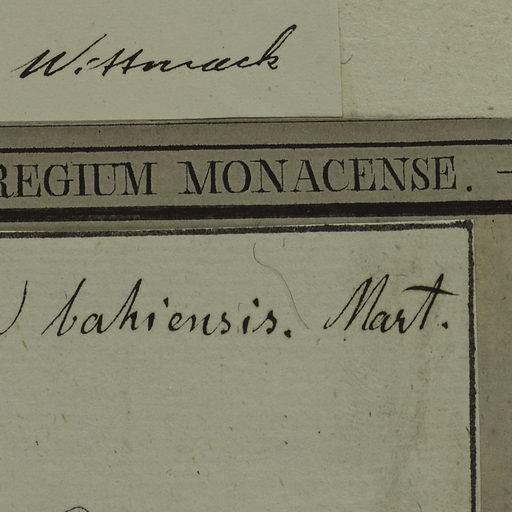 Wittmack
REGIUM MONACENSE. —
bahiensis. Mart.